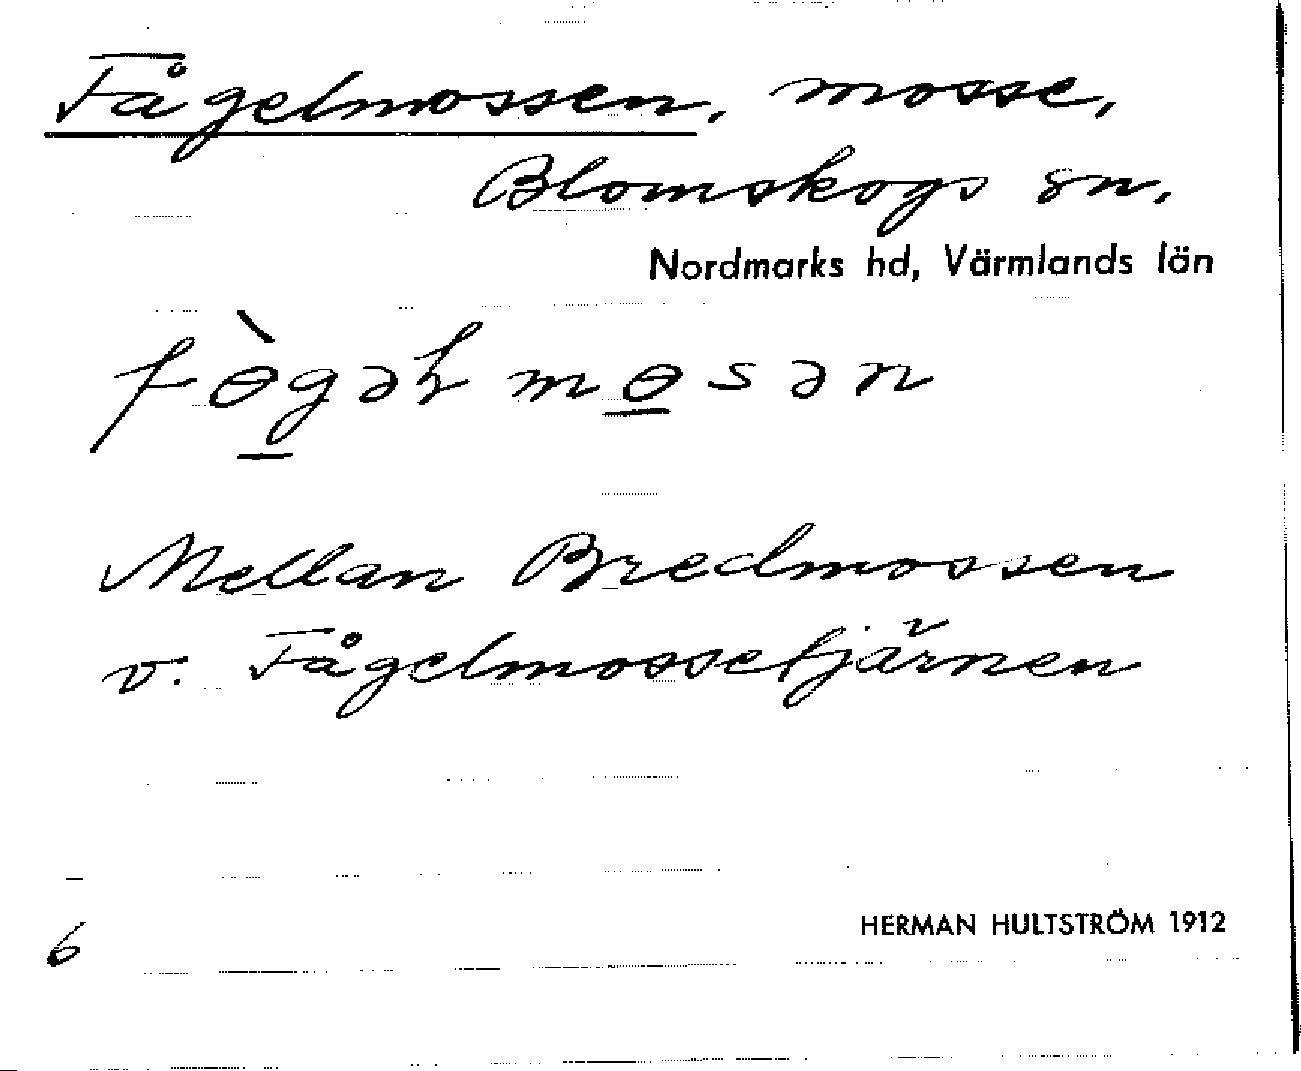 Fågelmossen, mosse,
Blomskogs sn,
Nordmarks hd, Värmlands län
fɵ̀gəɫmɵsən
Mellan Bredmossen
v. Fågelmossetjärnen
6
HERMAN HULTSTRÖM 1912